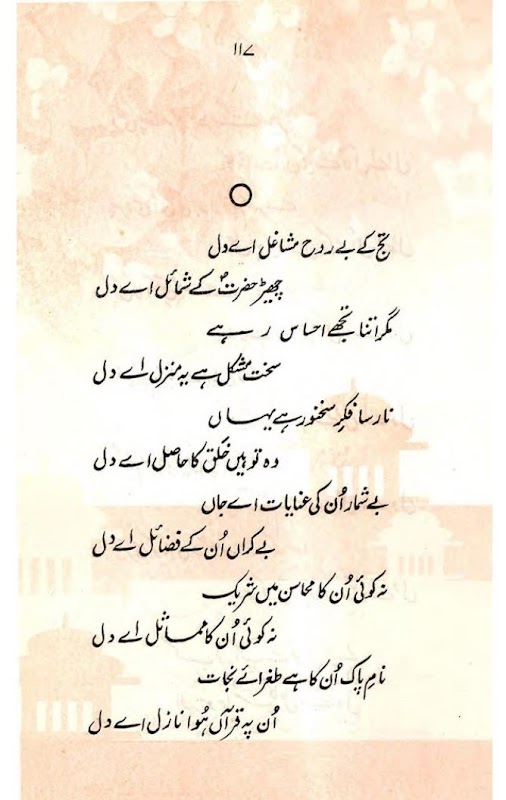 ۱۱۷
تج کے بے روح مشاغل اے دل
چھیڑ حضرتؐ کے شمائل اے دل
مگر اتنا تجھے احساس رہے
سخت مشکل ہے یہ منزل اے دل
نارسا فکرِ سخنور ہے یہاں
وہ تو ہیں خلق کا حاصل اے دل
بے شمار اُن کی عنایات اے جاں
بے کراں اُن کے فضائل اے دل
نہ کوئی اُن کا محاسن میں شریک
نہ کوئی اُن کا مماثل اے دل
نامِ پاک اُن کا ہے طغرائے نجات
اُن پہ قرآں ہُوا نازل اے دل